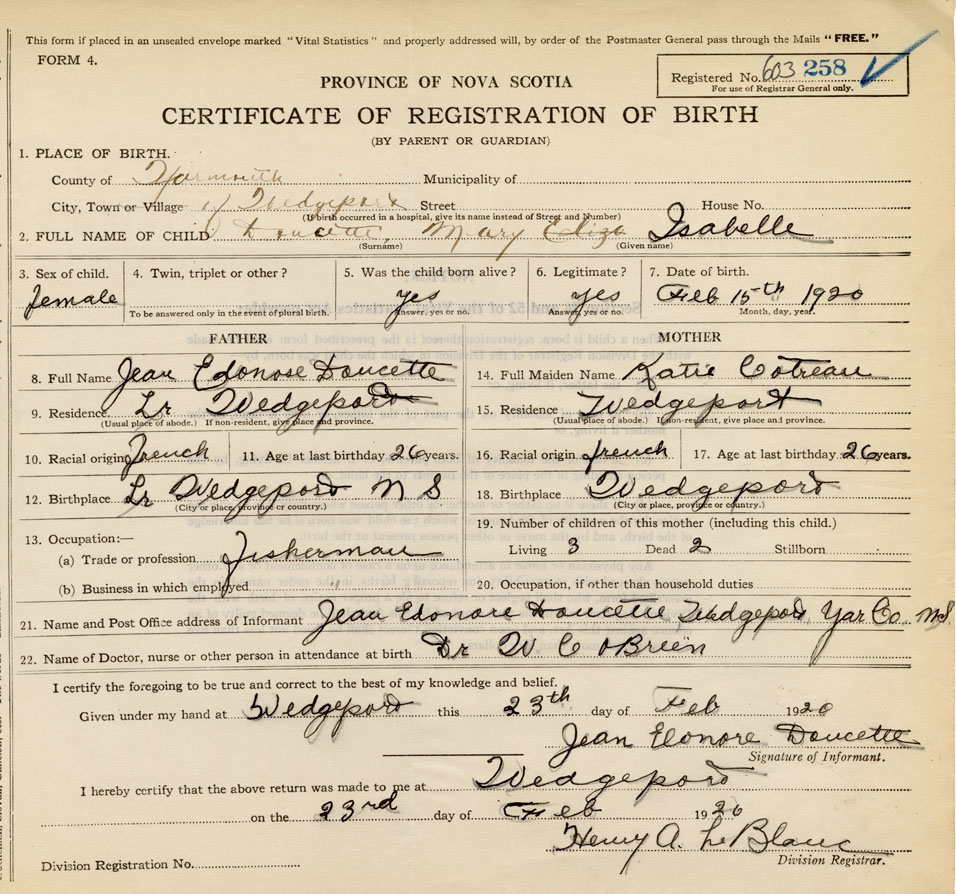 This form if placed in an unsealed envelope marked "Vital Statistics" and properly addressed will, by order of the Postmaster General pass through the Mails "FREE."
FORM 4.
Registered No. 603 258
For use of Registrar General only.
PROVINCE OF NOVA SCOTIA
CERTIFICATE OF REGISTRATION OF BIRTH
(BY PARENT OR GUARDIAN)
1. PLACE OF BIRTH.
County of Yarmouth Municipality of
City, Town or Village of Wedgeport Street House No.
(If birth occurred in a hospital, give its name instead of Street and Number)
2. FULL NAME OF CHILD Doucette, Mary Eliza Isabelle
(Surname) (Given name)
3. Sex of child. 4. Twin, triplet or other? 5. Was the child born alive? 6. Legitimate? 7. Date of birth.
female yes yes Feb 15th 1920
To be answered only in the event of plural birth. Answer, yes or no. Answer, yes or no. Month, day, year.
FATHER MOTHER
8. Full Name Jean Edonose Doucette 14. Full Maiden Name Katie Cotreau
9. Residence Lr Wedgeport 15. Residence Wedgeport
(Usual place of abode.) If non-resident, give place and province. (Usual place of abode.) If non-resident, give place and province.
10. Racial origin French 11. Age at last birthday 26 years. 16. Racial origin french 17. Age at last birthday 26 years.
12. Birthplace Lr Wedgeport N S 18. Birthplace Wedgeport
(City or place, province or country.) (City or place, province or country.)
13. Occupation:— 19. Number of children of this mother (including this child.)
(a) Trade or profession Fisherman Living 3 Dead 2 Stillborn
(b) Business in which employed 20. Occupation, if other than household duties
21. Name and Post Office address of Informant Jean Edonore Doucette Wedgeport Yar Co. N.S.
22. Name of Doctor, nurse or other person in attendance at birth Dr W C OBrien
I certify the foregoing to be true and correct to the best of my knowledge and belief.
Given under my hand at Wedgeport this 23th day of Feb 1920
Jean Elonore Doucette
Signature of Informant.
I hereby certify that the above return was made to me at Wedgeport
on the 23rd day of Feb 1920
Henry A. LeBlanc
Division Registration No. Division Registrar.